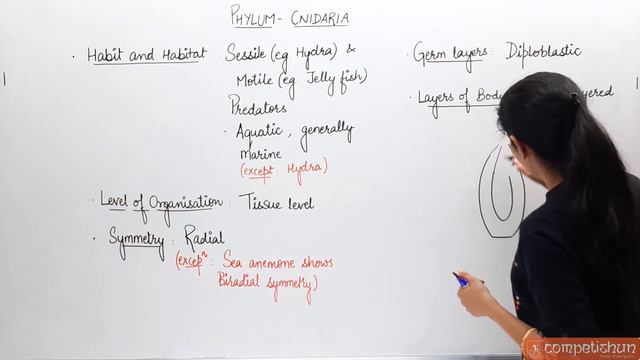 PHYLUM - CNIDARIA
• Habit and Habitat : Sessile (eg Hydra) &
Motile (eg. Jelly fish)
• Predators
• Aquatic ; generally
marine
(except : Hydra)
• Level of Organisation : Tissue level
• Symmetry : Radial
(excepⁿ : Sea anemone shows
Biradial symmetry)
• Germ layers : Diploblastic
• Layers of Body
competishun